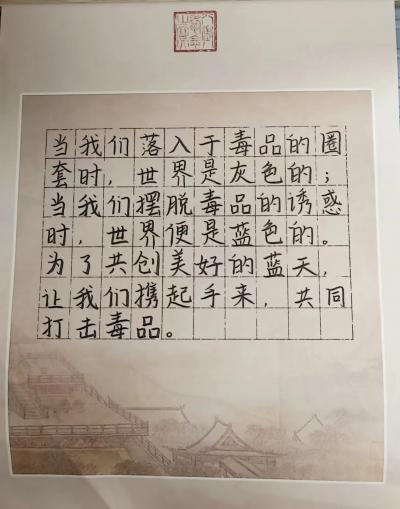 当我们落入于毒品的圈
套时，世界是灰色的；
当我们摆脱毒品的诱惑
时，世界便是蓝色的。
为了共创美好的蓝天，
让我们携起手来，共同
打击毒品。